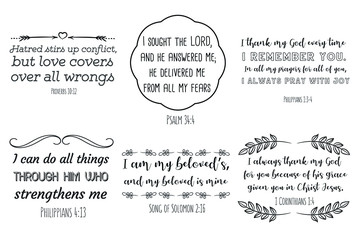 Hatred stirs up conflict,
but love covers
over all wrongs
PROVERBS 10:12
I SOUGHT THE LORD,
AND HE ANSWERED ME;
HE DELIVERED ME
FROM ALL MY FEARS
PSALM 34:4
I thank my God every time
I REMEMBER YOU.
In all my prayers for all of you,
I ALWAYS PRAY WITH JOY
PHILIPPIANS 1:3-4
I can do all things
THROUGH HIM WHO
strengthens me
PHILIPPIANS 4:13
I am my beloved's,
and my beloved is mine
SONG OF SOLOMON 2:16
I always thank my God
for you because of his grace
given you in Christ Jesus.
1 CORINTHIANS 1:4